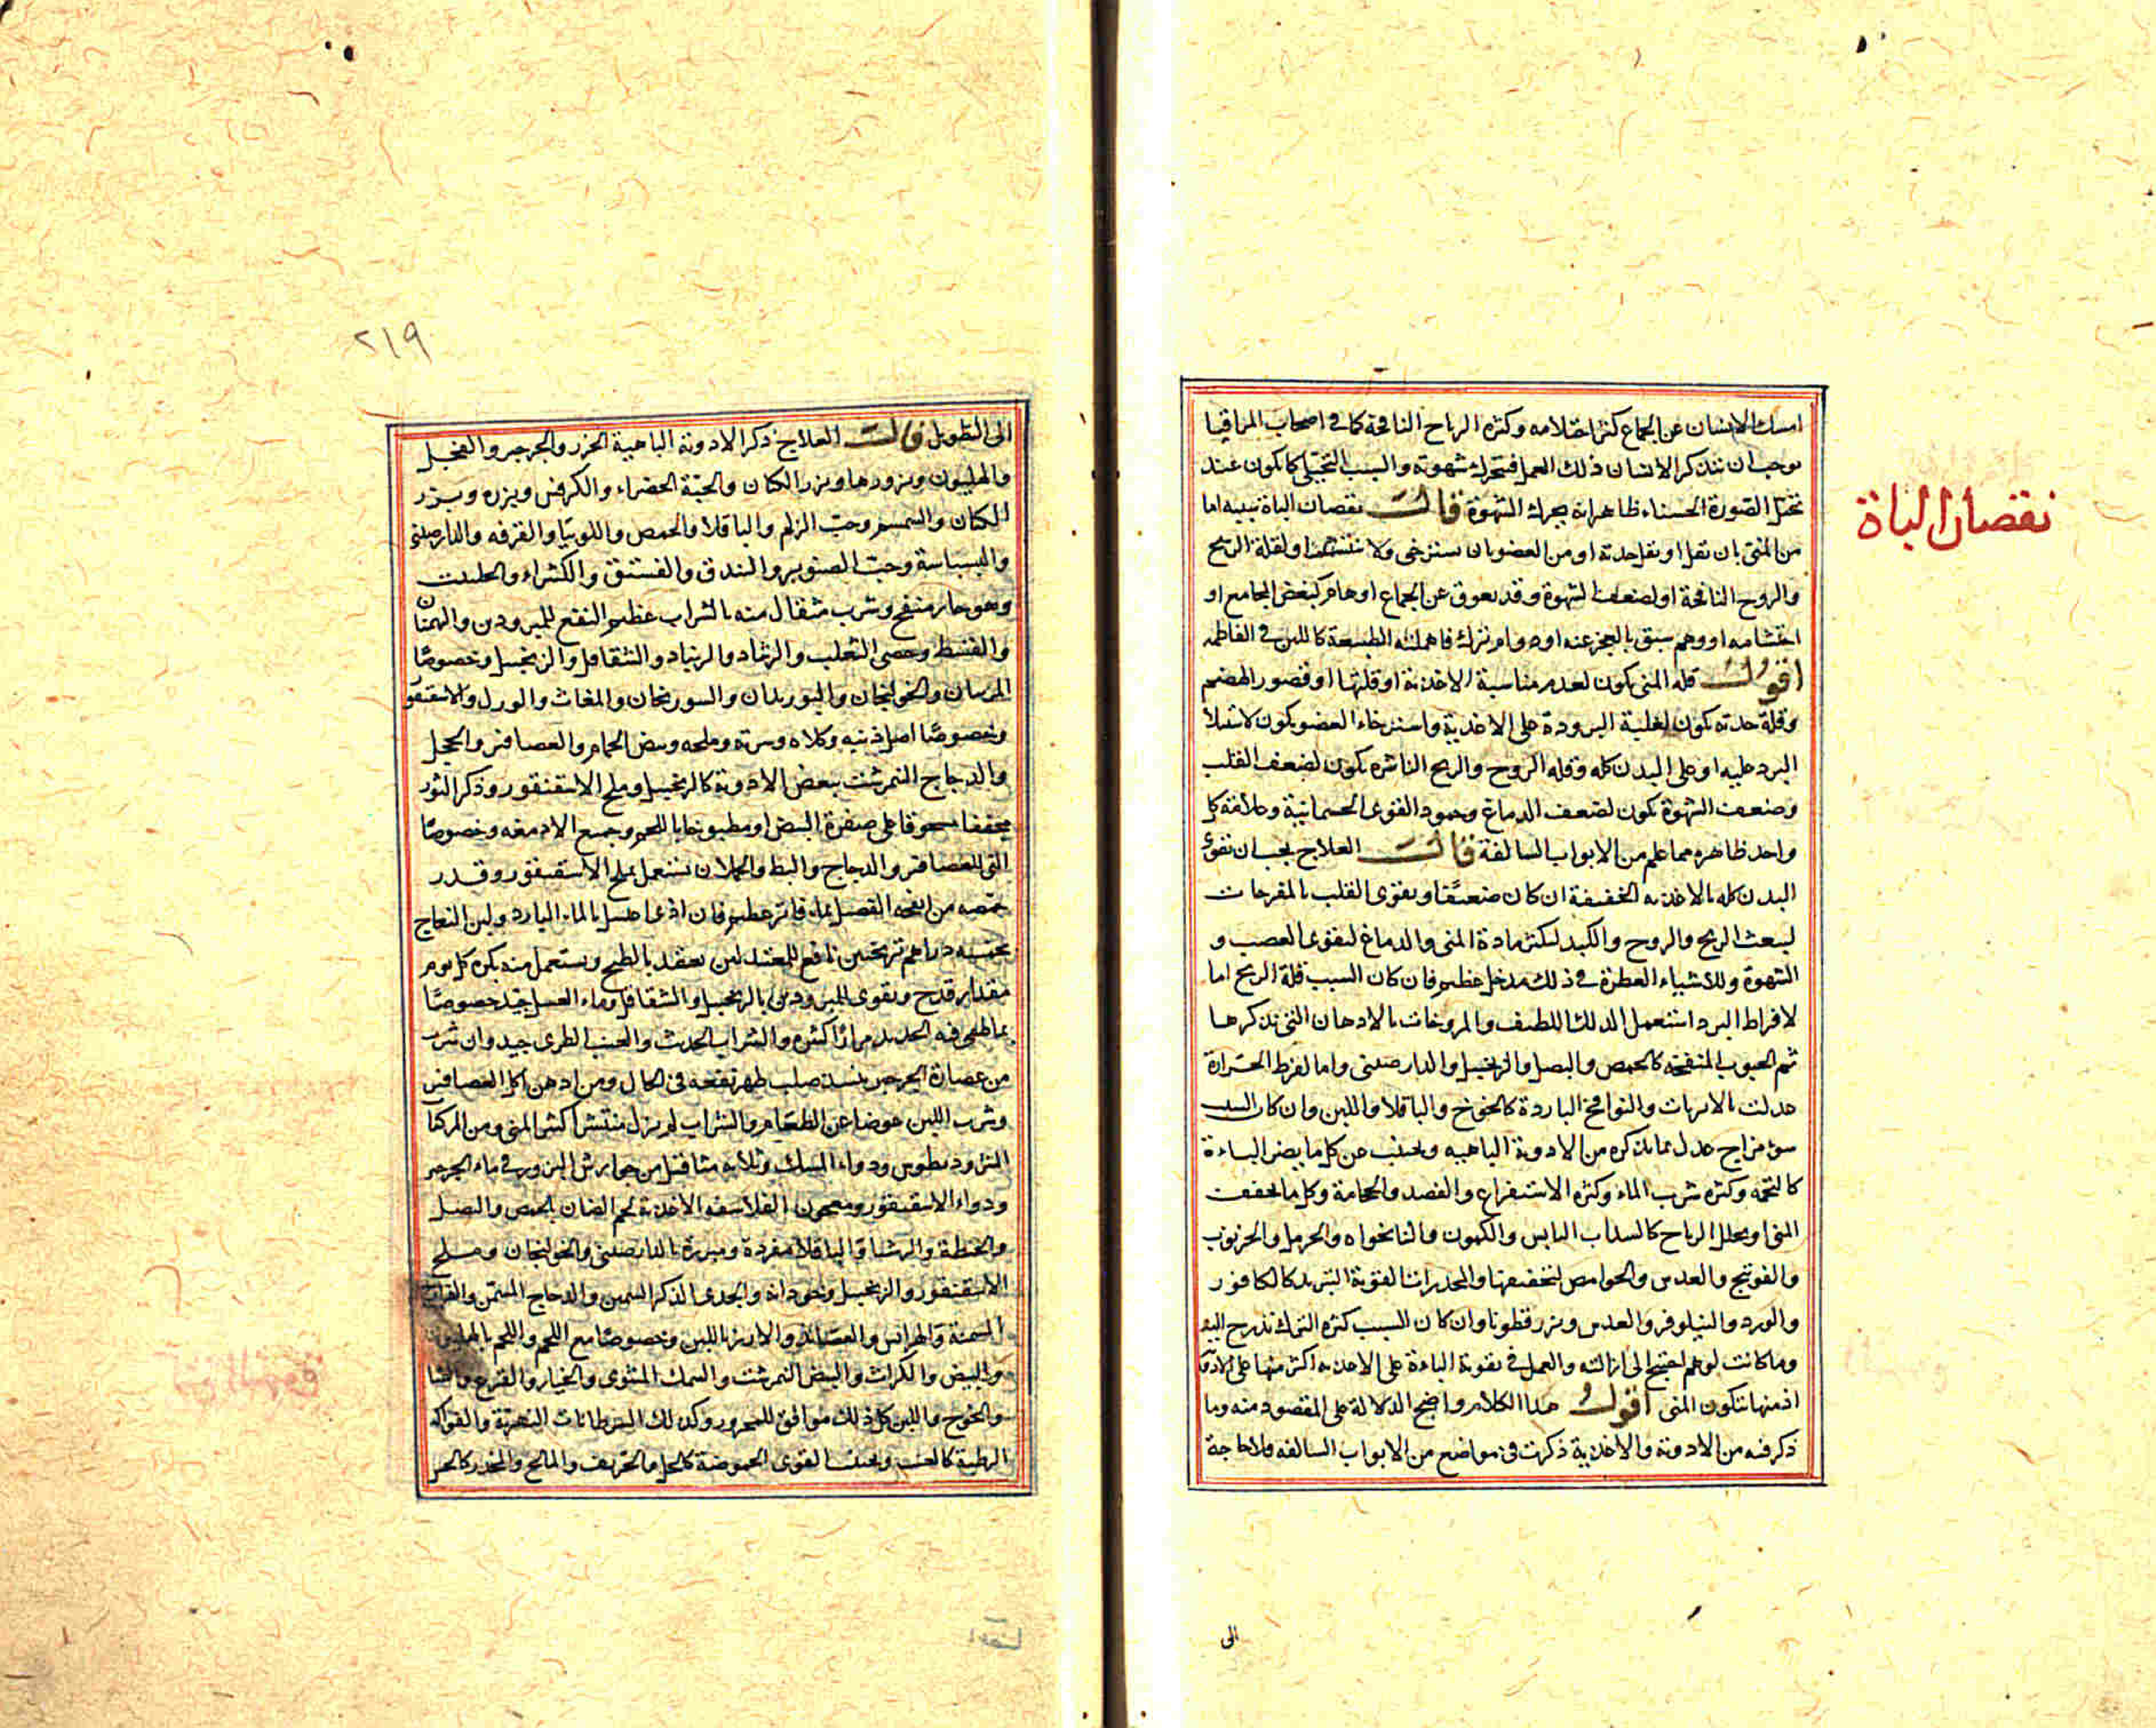 نقصان الباة
امسك الانسان عن الجماع كثر احتلامه وكثرة الرياح النافخة كما فى اصحاب المراقيا
يوجب ان يتذكر الانسان ذلك العمل فتحرك شهوته والسبب التخيلى كما يكون عند
تخيل الصورة الحسناء ظاهر انه يحرك الشهوة قالت نقصان الباة سببه اما
من المنى بان تقل او تقل حدته او من العضو بان يسترخى ولا ينتشر او لقلة الريح
والروح النافخة او لضعف الشهوة وقد يعوق عن الجماع اوهام كبغض المجامع او
احتشامه او وهم سبق بالعجز عنه او دوام ترك فاهملته الطبيعة كاللبن فى الفاطمه
اقول قلة المنى يكون لعدم مناسبة الاغذية او قلتها او قصور الهضم
وقلة حدته يكون لغلبة البرودة على الاغذية واسترخاء العضو يكون لاستيلاء
البرد عليه او على البدن كله وقله الروح والريح الناشره يكون لضعف القلب
وضعف الشهوة يكون لضعف الدماغ وخمود القوى الجسمانية وعلامة كل
واحد ظاهره مما علم من الابواب السالفة قالت العلاج يجب ان تقوى
البدن كله بالاغذيه الخفيفة ان كان ضعيفا ويقوى القلب بالمفرحات
ليبعث الريح والروح والكبد لتكثر مادة المنى والدماغ لتقوى العصب و
الشهوة وللاشياء العطرة فى ذلك مدخل عظيم فان كان السبب قلة الريح اما
لافراط البرد استعمل الدلك اللطيف والمروخات بالادهان التى نذكرها
ثم الحبوب المنفخة كالحمص والبصل والزنجبيل والدارصينى واما لفرط الحرارة
عدلت بالابزنات والنوافخ الباردة كالخوخ والباقلا واللبن وان كان السبب
سوء مزاج عدل بما نذكره من الادوية الباهيه ويجتنب عن كل ما يضر الباءة
كالتخمه وكثرة شرب الماء وكثرة الاستفراغ والفصد والحجامة وكل ما يجفف
المنى او يحلل الرياح كالسداب اليابس والكمون والنانخواه والحرمل والخرنوب
والفوتنج والعدس والحوامض لتجفيفها والمخدرات القوية التبريد كالكافور
والورد والنيلوفر والعدس وبزر قطونا وان كان السبب كثرة الترك تدرج اليه
وما كانت لوهم احتيج الى ازالته والعمل فى تقوية الباءة على الاغذيه اكثر منها على الادوية
اذ منها يتكون المنى اقول هذا الكلام واضح الدلالة على المقصود منه وما
ذكر فيه من الادوية والاغذية ذكرت فى مواضع من الابواب السالفه فلا حاجة
الى
٢١٩
الى التطويل قالت العلاج ذكر الادوية الباهية الجزر والجرجير والفجل
والهليون وبزورها وبزر الكتان والحبة الخضراء والكرفس وبزره وبزر
الكتان والسمسم وحب الزلم والباقلا والحمص واللوبيا والقرفه والدارصينى
والبسباسة وحب الصنوبر والبندق والفستق والكثيراء والحلتيت
وهو حار منفخ وشرب مثقال منه بالشراب عظيم النفع للمبرودين والبهمنان
والقسط وخصى الثعلب والرشاد والزنباد والشقاقل والزنجبيل وخصوصا
المربيان والخولنجان والبوزيدان والسورنجان والمغاث والورل والاسقنقور
وخصوصا اصل ذنبه وكلاه وسرته وملحه وبيض الحمام والعصافير والحجل
والدجاج النمرشت ببعض الادوية كالزنجبيل وملح الاسقنقور وذكر الثور
مجففا مسحوقا على صفرة البيض او مطبوخا باللحم وجميع الادمغه وخصوصا
التى للعصافير والدجاج والبط والحملان يستعمل بملح الاسقنقور وقدر
حمصه من انفحة الفصيل بماء فاتر عظيم فان اذى اغتسل بالماء البارد ولبن النعاج
بخمسة دراهم ترنجبين نافع للمعتدلين يعقد بالطبخ ويستعمل منه بكرة كل يوم
مقدار قدح ويقوى للمبرودين بالزنجبيل والشقاقل وماء العسل جيد خصوصا
بما طفى فيه الحديد مرارا كثيرة والشراب الحديث والعنب الطرى جيد وان شرب
من عصارة الجرجير بنبيذ صلب ظهر نفعه فى الحال ومن ادمن اكل العصافير
وشرب اللبن عوضا عن الطعام والشراب لم يزل منتشرا كثير المنى ومن المركبات
المثروديطوس ودواء المسك وثلاثة مثاقيل من جوارش البزور فى ماء الجرجير
ودواء الاسقنقور ومعجون الفلاسفه الاغذية لحم الضان بالحمص والبصل
والحنطة والباقلا مفردة ومبزرة بالدارصينى والخولنجان وملح
الاسقنقور والزنجبيل والجدى الذكر السمين والدجاج المسمن والفراخ
المسمنة والهرايس والعصائد والارز باللبن وخصوصا مع اللحم واللحم بالهليون
والبيض والكراث والبيض النمرشت والسمك المشوى والخيار والقرع والقثا
والخوخ واللبن كل ذلك موافق للمحرور وكذلك السرطانات النهرية والفواكه
الرطبة كالعنب ويجتنب القوى الحموضة كالخل والحريف والمالح والمخدر كالخس